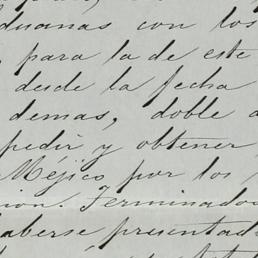 duanas con los
, para la de este
desde la fecha
demas, doble a
pedir y obtener
Méjico por los
ion. Terminado
aberse presentad